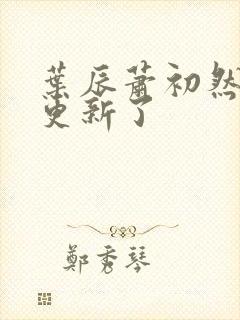 葉辰蕭初然
更新了
鄭秀琴